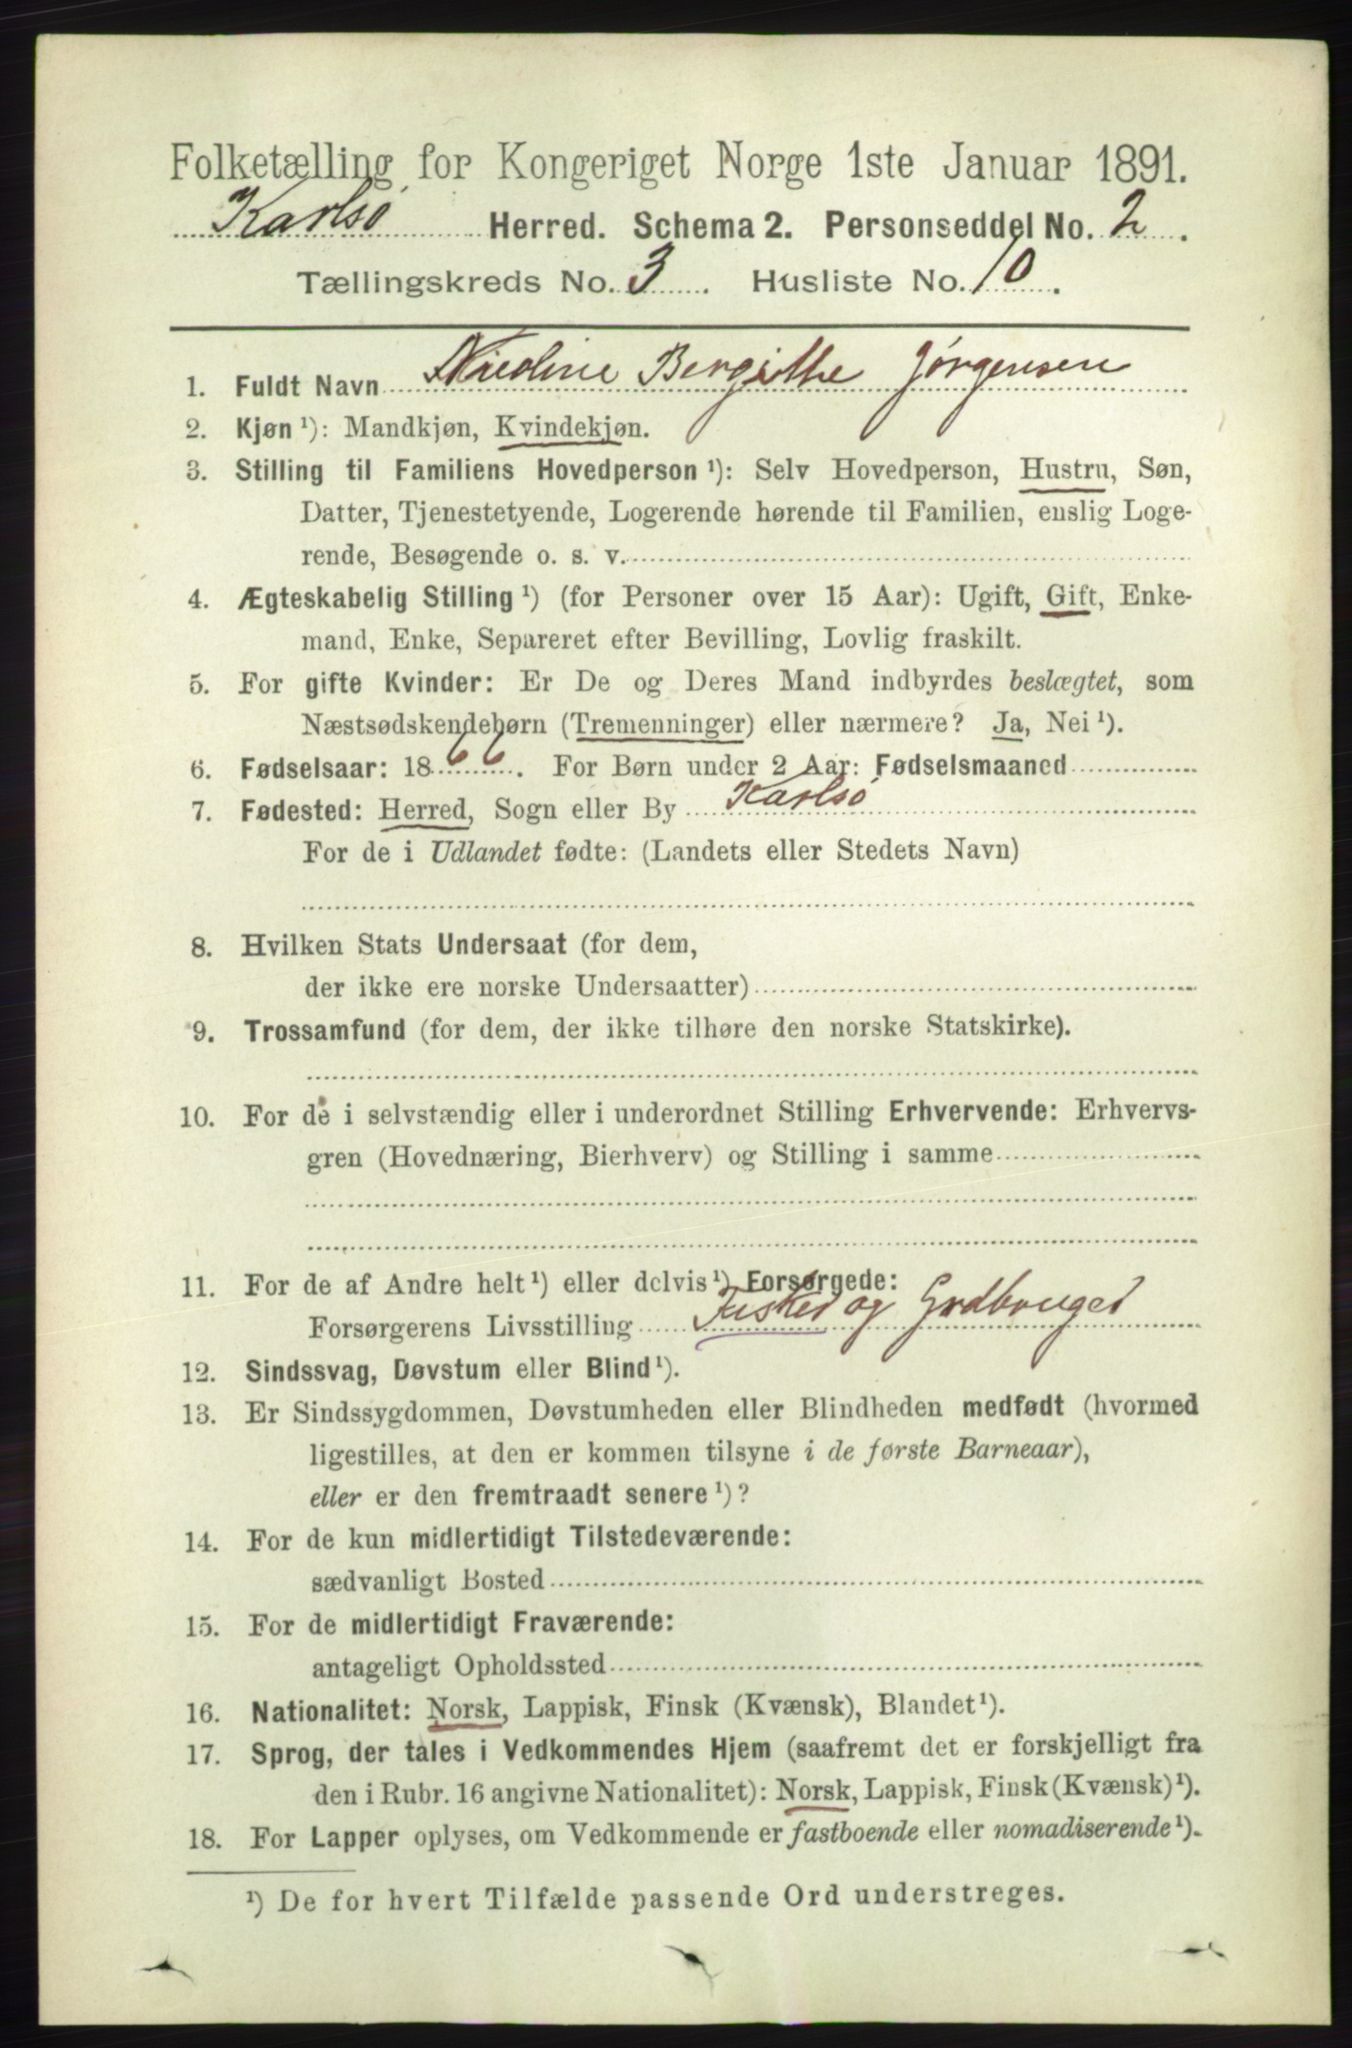 Folketælling for Kongeriget Norge 1ste Januar 1891.
Karlsø Herred. Schema 2. Personseddel No. 2.
Tællingskreds No. 3. Husliste No. 10.
1. Fuldt Navn Nicoline Bergitthe Jørgensen
2. Kjøn ¹): Mandkjøn, Kvindekjøn.
3. Stilling til Familiens Hovedperson ¹): Selv Hovedperson, Hustru, Søn,
Datter, Tjenestetyende, Logerende hørende til Familien, enslig Loge-
rende, Besøgende o. s. v.
4. Ægteskabelig Stilling ¹) (for Personer over 15 Aar): Ugift, Gift, Enke-
mand, Enke, Separeret efter Bevilling, Lovlig fraskilt.
5. For gifte Kvinder: Er De og Deres Mand indbyrdes beslægtet, som
Næstsødskendebørn (Tremenninger) eller nærmere? Ja, Nei ¹).
6. Fødselsaar: 1866. For Børn under 2 Aar: Fødselsmaaned
7. Fødested: Herred, Sogn eller By Karlsø
For de i Udlandet fødte: (Landets eller Stedets Navn)
8. Hvilken Stats Undersaat (for dem,
der ikke ere norske Undersaatter)
9. Trossamfund (for dem, der ikke tilhøre den norske Statskirke).
10. For de i selvstændig eller i underordnet Stilling Erhvervende: Erhvervs-
gren (Hovednæring, Bierhverv) og Stilling i samme
11. For de af Andre helt ¹) eller delvis ¹) Forsørgede:
Forsørgerens Livsstilling Fisker og Grdbruger
12. Sindssvag, Døvstum eller Blind ¹).
13. Er Sindssygdommen, Døvstumheden eller Blindheden medfødt (hvormed
ligestilles, at den er kommen tilsyne i de første Barneaar),
eller er den fremtraadt senere ¹)?
14. For de kun midlertidigt Tilstedeværende:
sædvanligt Bosted
15. For de midlertidigt Fraværende:
antageligt Opholdssted
16. Nationalitet: Norsk, Lappisk, Finsk (Kvænsk), Blandet ¹).
17. Sprog, der tales i Vedkommendes Hjem (saafremt det er forskjelligt fra
den i Rubr. 16 angivne Nationalitet): Norsk, Lappisk, Finsk (Kvænsk) ¹).
18. For Lapper oplyses, om Vedkommende er fastboende eller nomadiserende ¹).
¹) De for hvert Tilfælde passende Ord understreges.